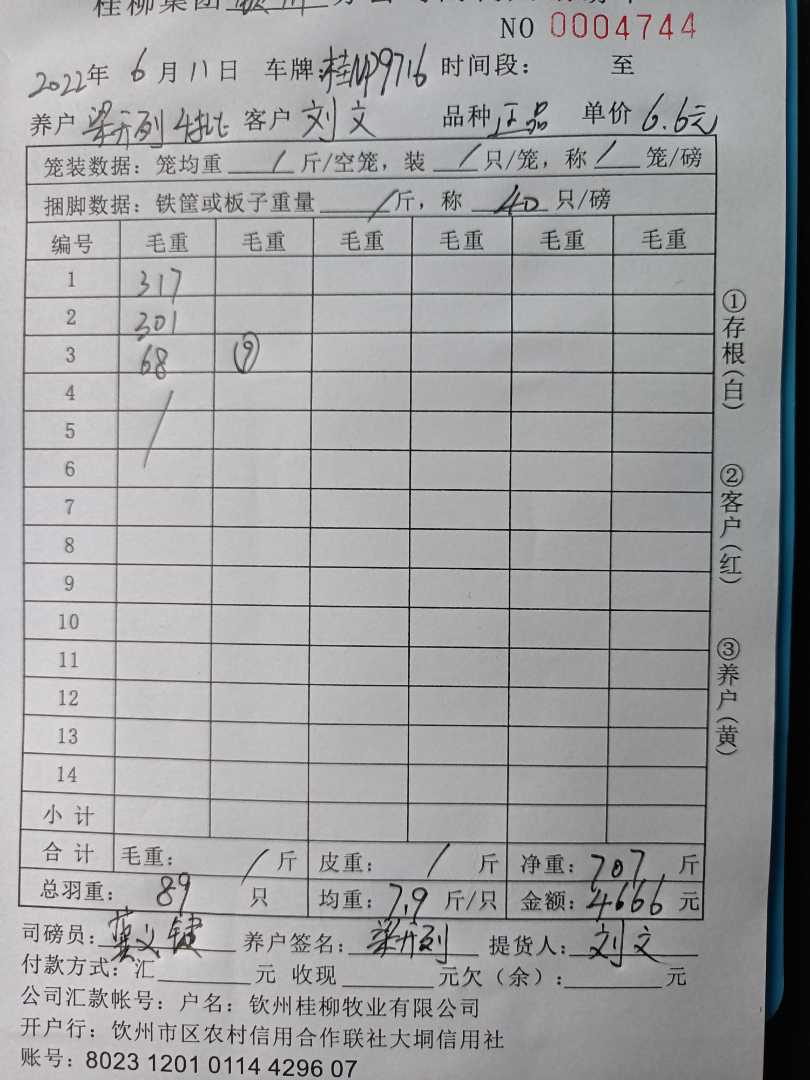 桂柳集团
NO 0004744
2022年 6月11日 车牌:桂NP9716 时间段: 至
养户 梁开列 客户 刘文 品种 正品 单价 6.6元
笼装数据: 笼均重 / 斤/空笼, 装 / 只/笼, 称 / 笼/磅
捆脚数据: 铁筐或板子重量 / 斤, 称 40 只/磅
编号 毛重 毛重 毛重 毛重 毛重 毛重
1 317
2 301
3 68 (9)
4 /
5
6
7
8
9
10
11
12
13
14
小计
合计 毛重: / 斤 皮重: / 斤 净重: 707 斤
总羽重: 89 只 均重: 7.9 斤/只 金额: 4666 元
司磅员: 养户签名: 梁开列 提货人: 刘文
付款方式: 汇 元 收现 元欠(余): 元
公司汇款帐号: 户名: 钦州桂柳牧业有限公司
开户行: 钦州市区农村信用合作联社大垌信用社
账号: 8023 1201 0114 4296 07
①存根(白)
②客户(红)
③养户(黄)